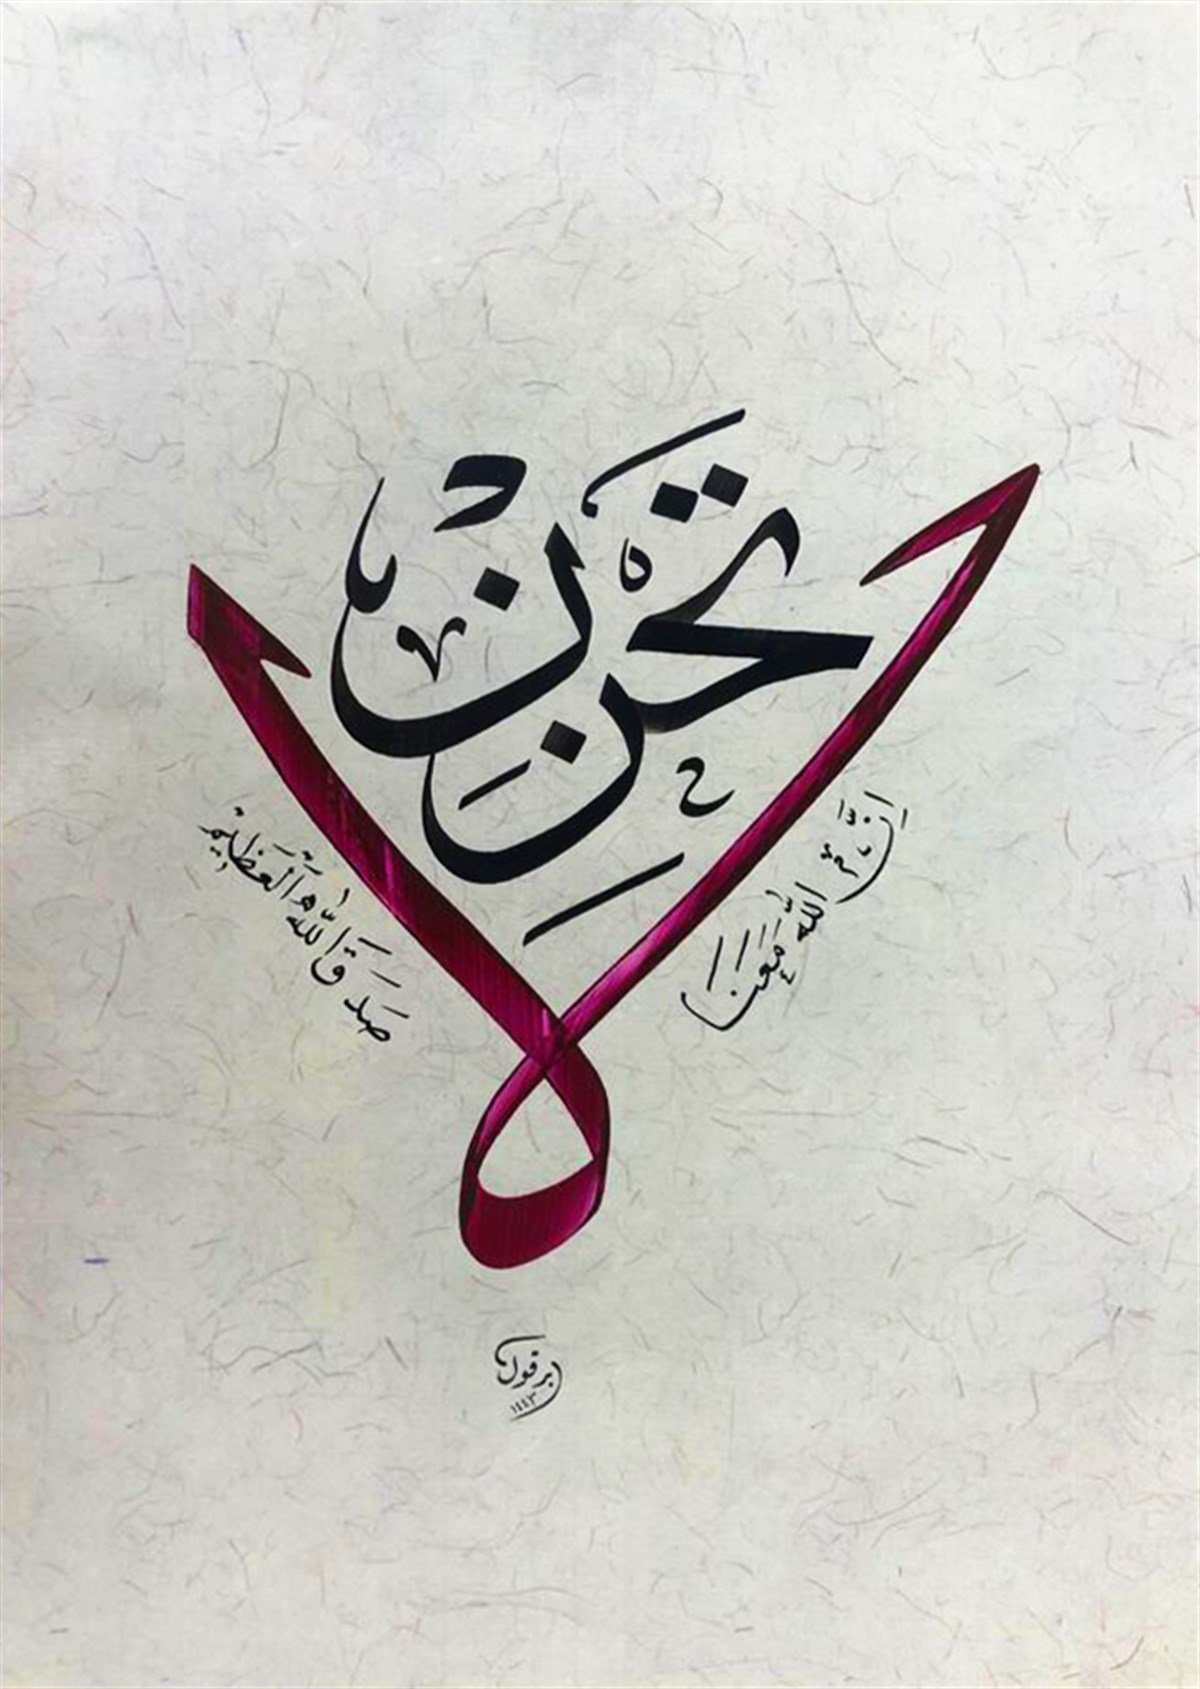 لَا تَحْزَنْ
إِنَّ اللَّهَ مَعَنَا
صَدَقَ اللَّهُ الْعَظِيمُ
١٤٤٣